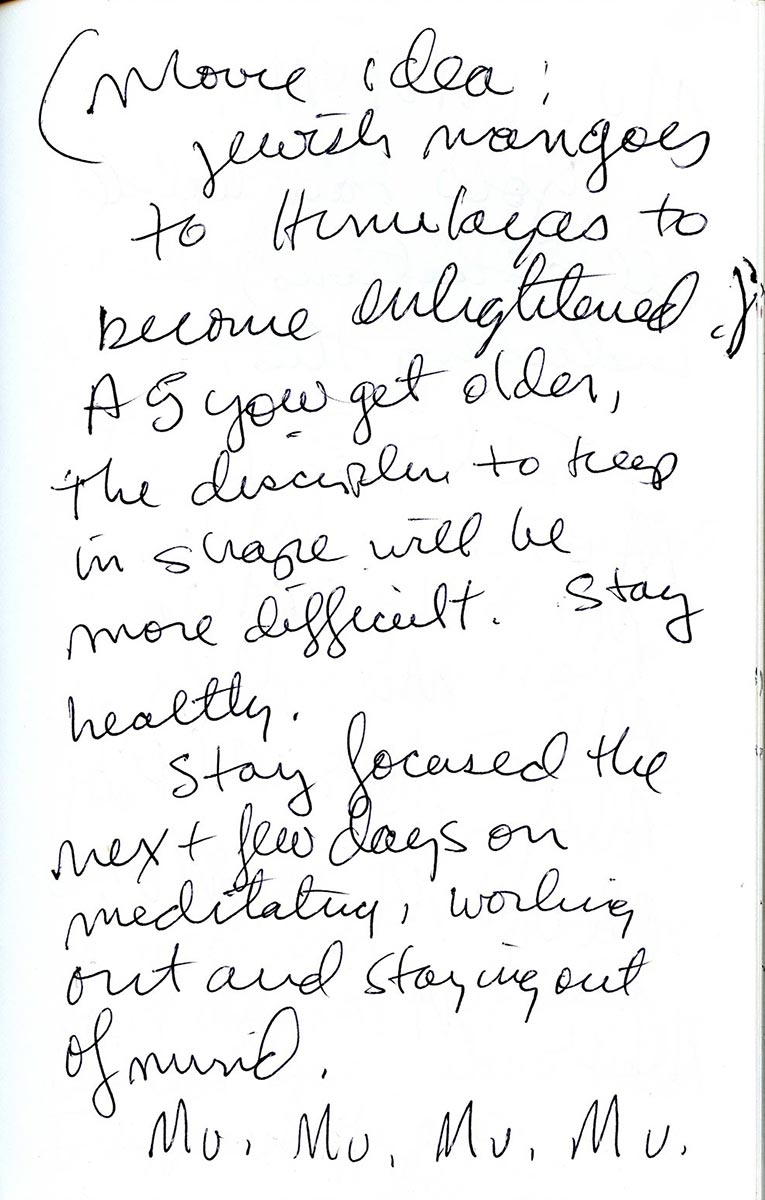 (Movie idea:
Jewish man goes
to Himalayas to
become enlightened.)
As you get older,
the discipline to keep
in shape will be
more difficult. Stay
healthy.
Stay focused the
next few days on
meditating, working
out and staying out
of mind.
Mu. Mu. Mu. Mu.